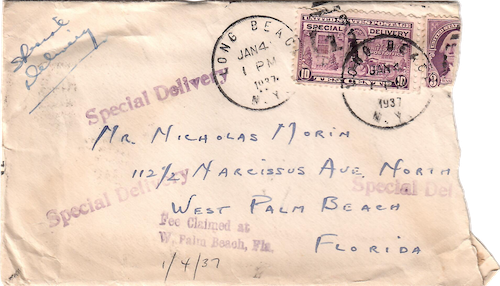 Special
Delivery
LONG BEACH
JAN 4
1 PM
1937
N.Y.
UNITED STATES POSTAGE
SPECIAL DELIVERY
10 10
3
LONG BEACH
JAN 4
1937
N.Y.
Special Delivery
Mr. Nicholas Morin
112½ Narcissus Ave, North
Special Delivery
Special Del
West Palm Beach
Fee Claimed at
W. Palm Beach, Fla.
Florida
1/4/37